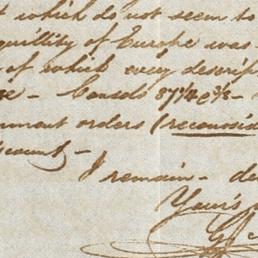 which do not seem to
quillity of Europe was
of which every descrip
Consols 87¼
orders (reconsid
count) -
I remain - de
Yours